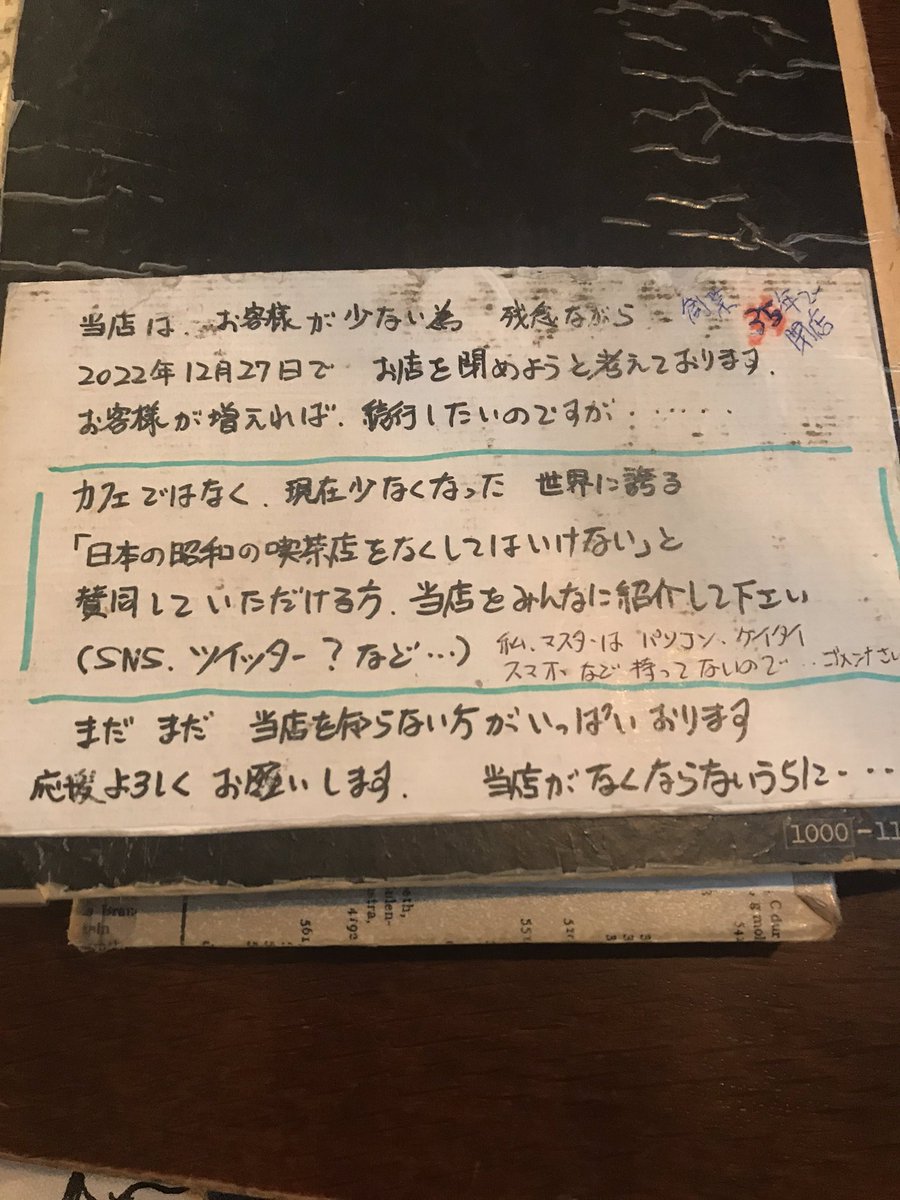 当店は、お客様が少ない為 残念ながら
創業 35年で
閉店
2022年12月27日で お店を閉めようと考えております.
お客様が増えれば、続行したいのですが・・・・・・
カフェではなく、現在少なくなった 世界に誇る
「日本の昭和の喫茶店をなくしてはいけない」と
賛同していただける方、当店をみんなに紹介して下さい
(SNS、ツイッター?など…)
私、マスターは パソコン、ケイタイ
スマホなど持ってないので…ゴメンナさい
まだ まだ 当店を知らない方がいっぱいおります
応援よろしく お願いします. 当店がなくならないうちに・・・
1000-11